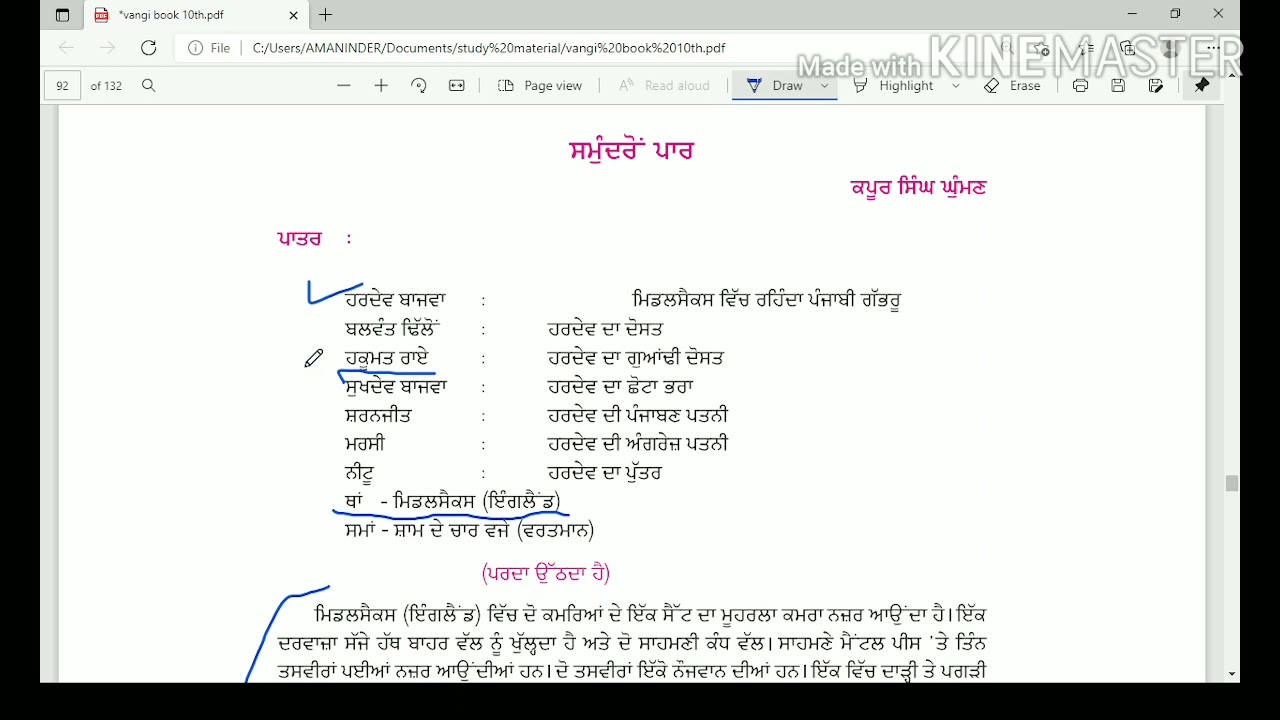 *vangi book 10th.pdf
File C:/Users/AMANINDER/Documents/study%20material/vangi%20book%2010th.pdf
Made with KINEMASTER
92 of 132 Page view Read aloud Draw Highlight Erase
ਸਮੁੰਦਰੋਂ ਪਾਰ
ਕਪੂਰ ਸਿੰਘ ਘੁੰਮਣ
ਪਾਤਰ :
ਹਰਦੇਵ ਬਾਜਵਾ : ਮਿਡਲਸੈਕਸ ਵਿੱਚ ਰਹਿੰਦਾ ਪੰਜਾਬੀ ਗੱਭਰੂ
ਬਲਵੰਤ ਢਿੱਲੋਂ : ਹਰਦੇਵ ਦਾ ਦੋਸਤ
ਹਕੂਮਤ ਰਾਏ : ਹਰਦੇਵ ਦਾ ਗੁਆਂਢੀ ਦੋਸਤ
ਸੁਖਦੇਵ ਬਾਜਵਾ : ਹਰਦੇਵ ਦਾ ਛੋਟਾ ਭਰਾ
ਸ਼ਰਨਜੀਤ : ਹਰਦੇਵ ਦੀ ਪੰਜਾਬਣ ਪਤਨੀ
ਮਰਸੀ : ਹਰਦੇਵ ਦੀ ਅੰਗਰੇਜ਼ ਪਤਨੀ
ਨੀਟੂ : ਹਰਦੇਵ ਦਾ ਪੁੱਤਰ
ਥਾਂ - ਮਿਡਲਸੈਕਸ (ਇੰਗਲੈਂਡ)
ਸਮਾਂ - ਸ਼ਾਮ ਦੇ ਚਾਰ ਵਜੇ (ਵਰਤਮਾਨ)
(ਪਰਦਾ ਉੱਠਦਾ ਹੈ)
ਮਿਡਲਸੈਕਸ (ਇੰਗਲੈਂਡ) ਵਿੱਚ ਦੋ ਕਮਰਿਆਂ ਦੇ ਇੱਕ ਸੈੱਟ ਦਾ ਮੂਹਰਲਾ ਕਮਰਾ ਨਜ਼ਰ ਆਉਂਦਾ ਹੈ। ਇੱਕ
ਦਰਵਾਜ਼ਾ ਸੱਜੇ ਹੱਥ ਬਾਹਰ ਵੱਲ ਨੂੰ ਖੁੱਲ੍ਹਦਾ ਹੈ ਅਤੇ ਦੋ ਸਾਹਮਣੀ ਕੰਧ ਵੱਲ। ਸਾਹਮਣੇ ਮੈਂਟਲ ਪੀਸ 'ਤੇ ਤਿੰਨ
ਤਸਵੀਰਾਂ ਪਈਆਂ ਨਜ਼ਰ ਆਉਂਦੀਆਂ ਹਨ। ਦੋ ਤਸਵੀਰਾਂ ਇੱਕੋ ਨੌਜਵਾਨ ਦੀਆਂ ਹਨ। ਇੱਕ ਵਿੱਚ ਦਾੜ੍ਹੀ ਤੇ ਪਗੜੀ